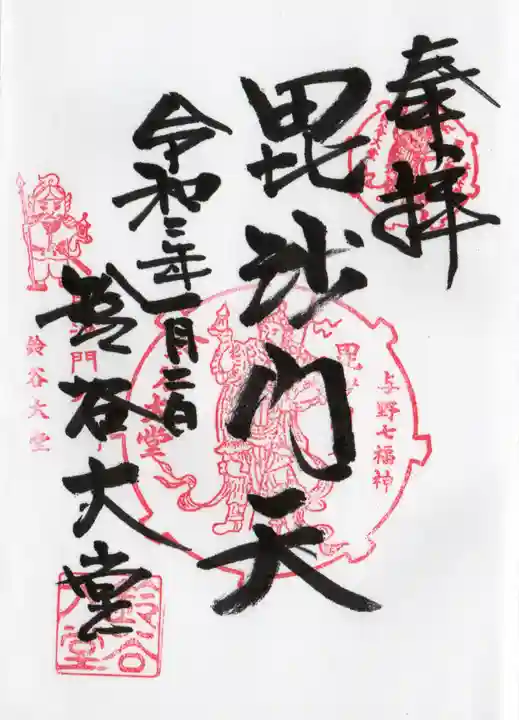 奉拝
毘沙門天
令和二年一月二日
鈴谷大堂
与野七福神
毘
門
堂
鈴谷大堂
鈴谷大堂